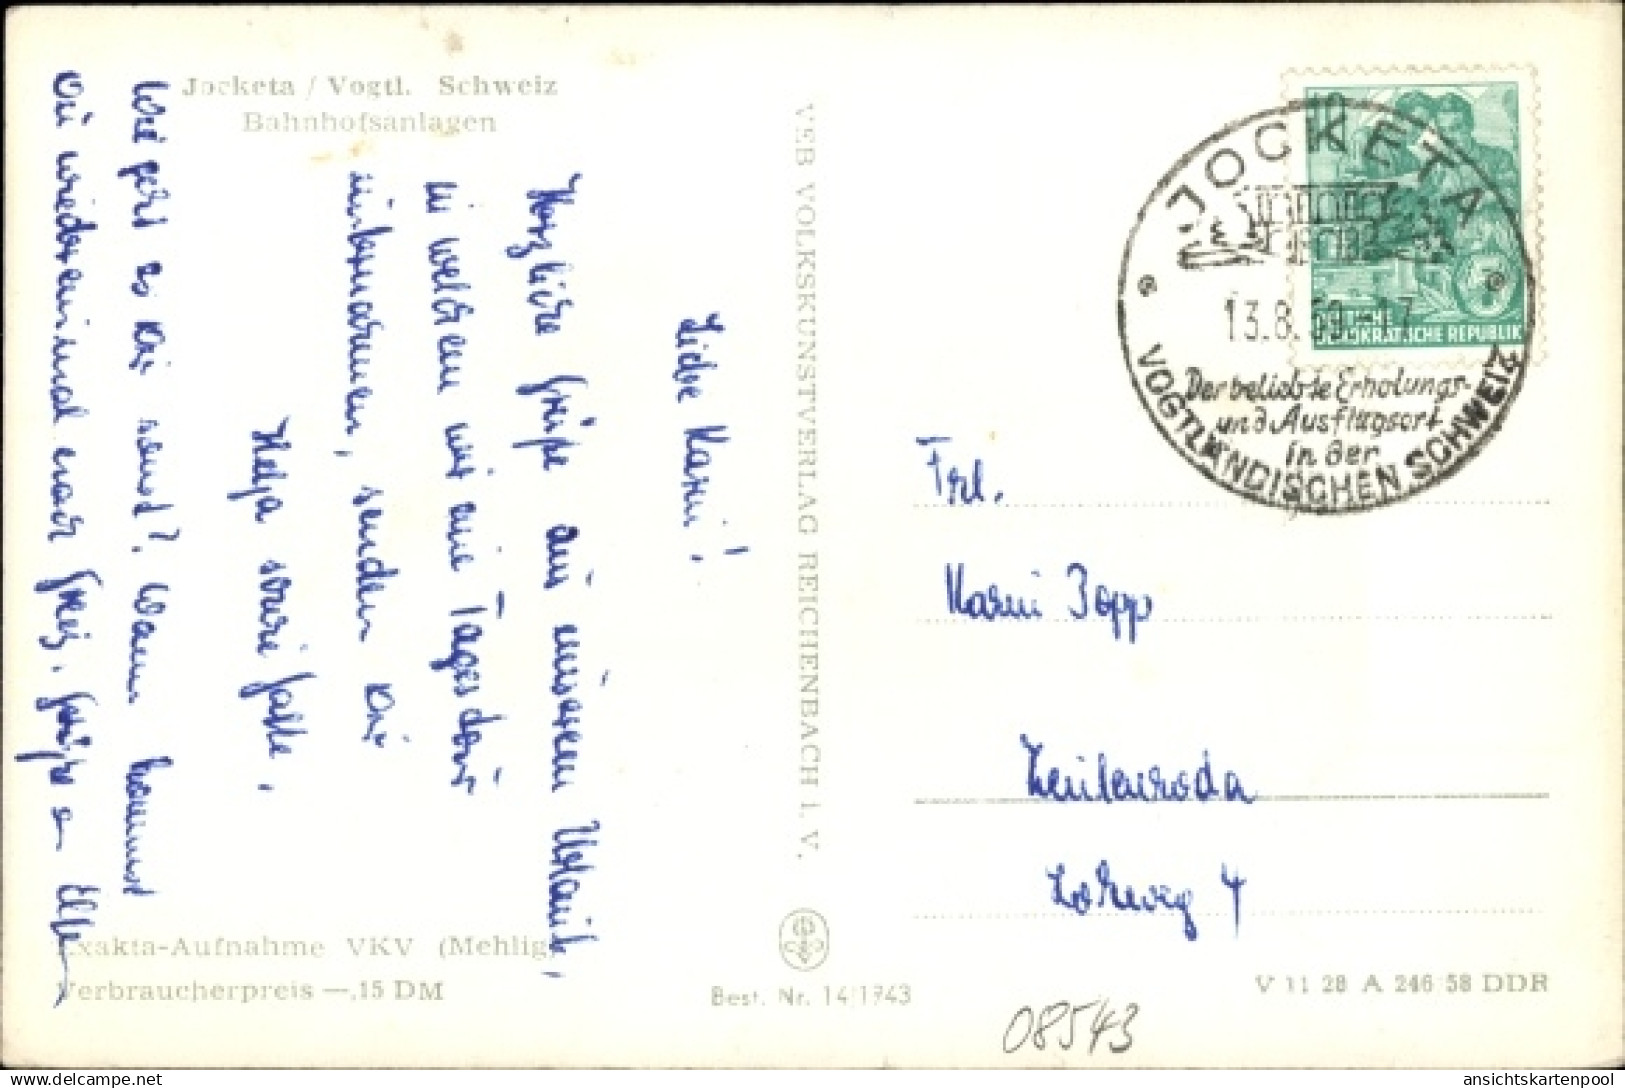 Jocketa / Vogtl. Schweiz
Bahnhofsanlagen
Liebe Karin!
Herzliche Grüße aus unserem Urlaub,
in welchem wir eine Tagestour
unternommen, senden Dir
Helga sowie Gatte.
Wie geht es Dir sonst? Wann kommst
Du wieder einmal nach Greiz. Grüße an
VEB VOLKSKUNSTVERLAG REICHENBACH I. V.
Exakta-Aufnahme VKV (Mehlig)
Verbraucherpreis —,15 DM
Best. Nr. 14/1743
JOCKETA
13.8.59.-17
Der beliebte Erholungs-
und Ausflugsort
in der
VOGTLÄNDISCHEN SCHWEIZ
DEUTSCHE
DEMOKRATISCHE REPUBLIK
Frl.
Karin Popp
Zeulenroda
4
V 11 28 A 246 58 DDR
08543
delcampe.net
ansichtskartenpool